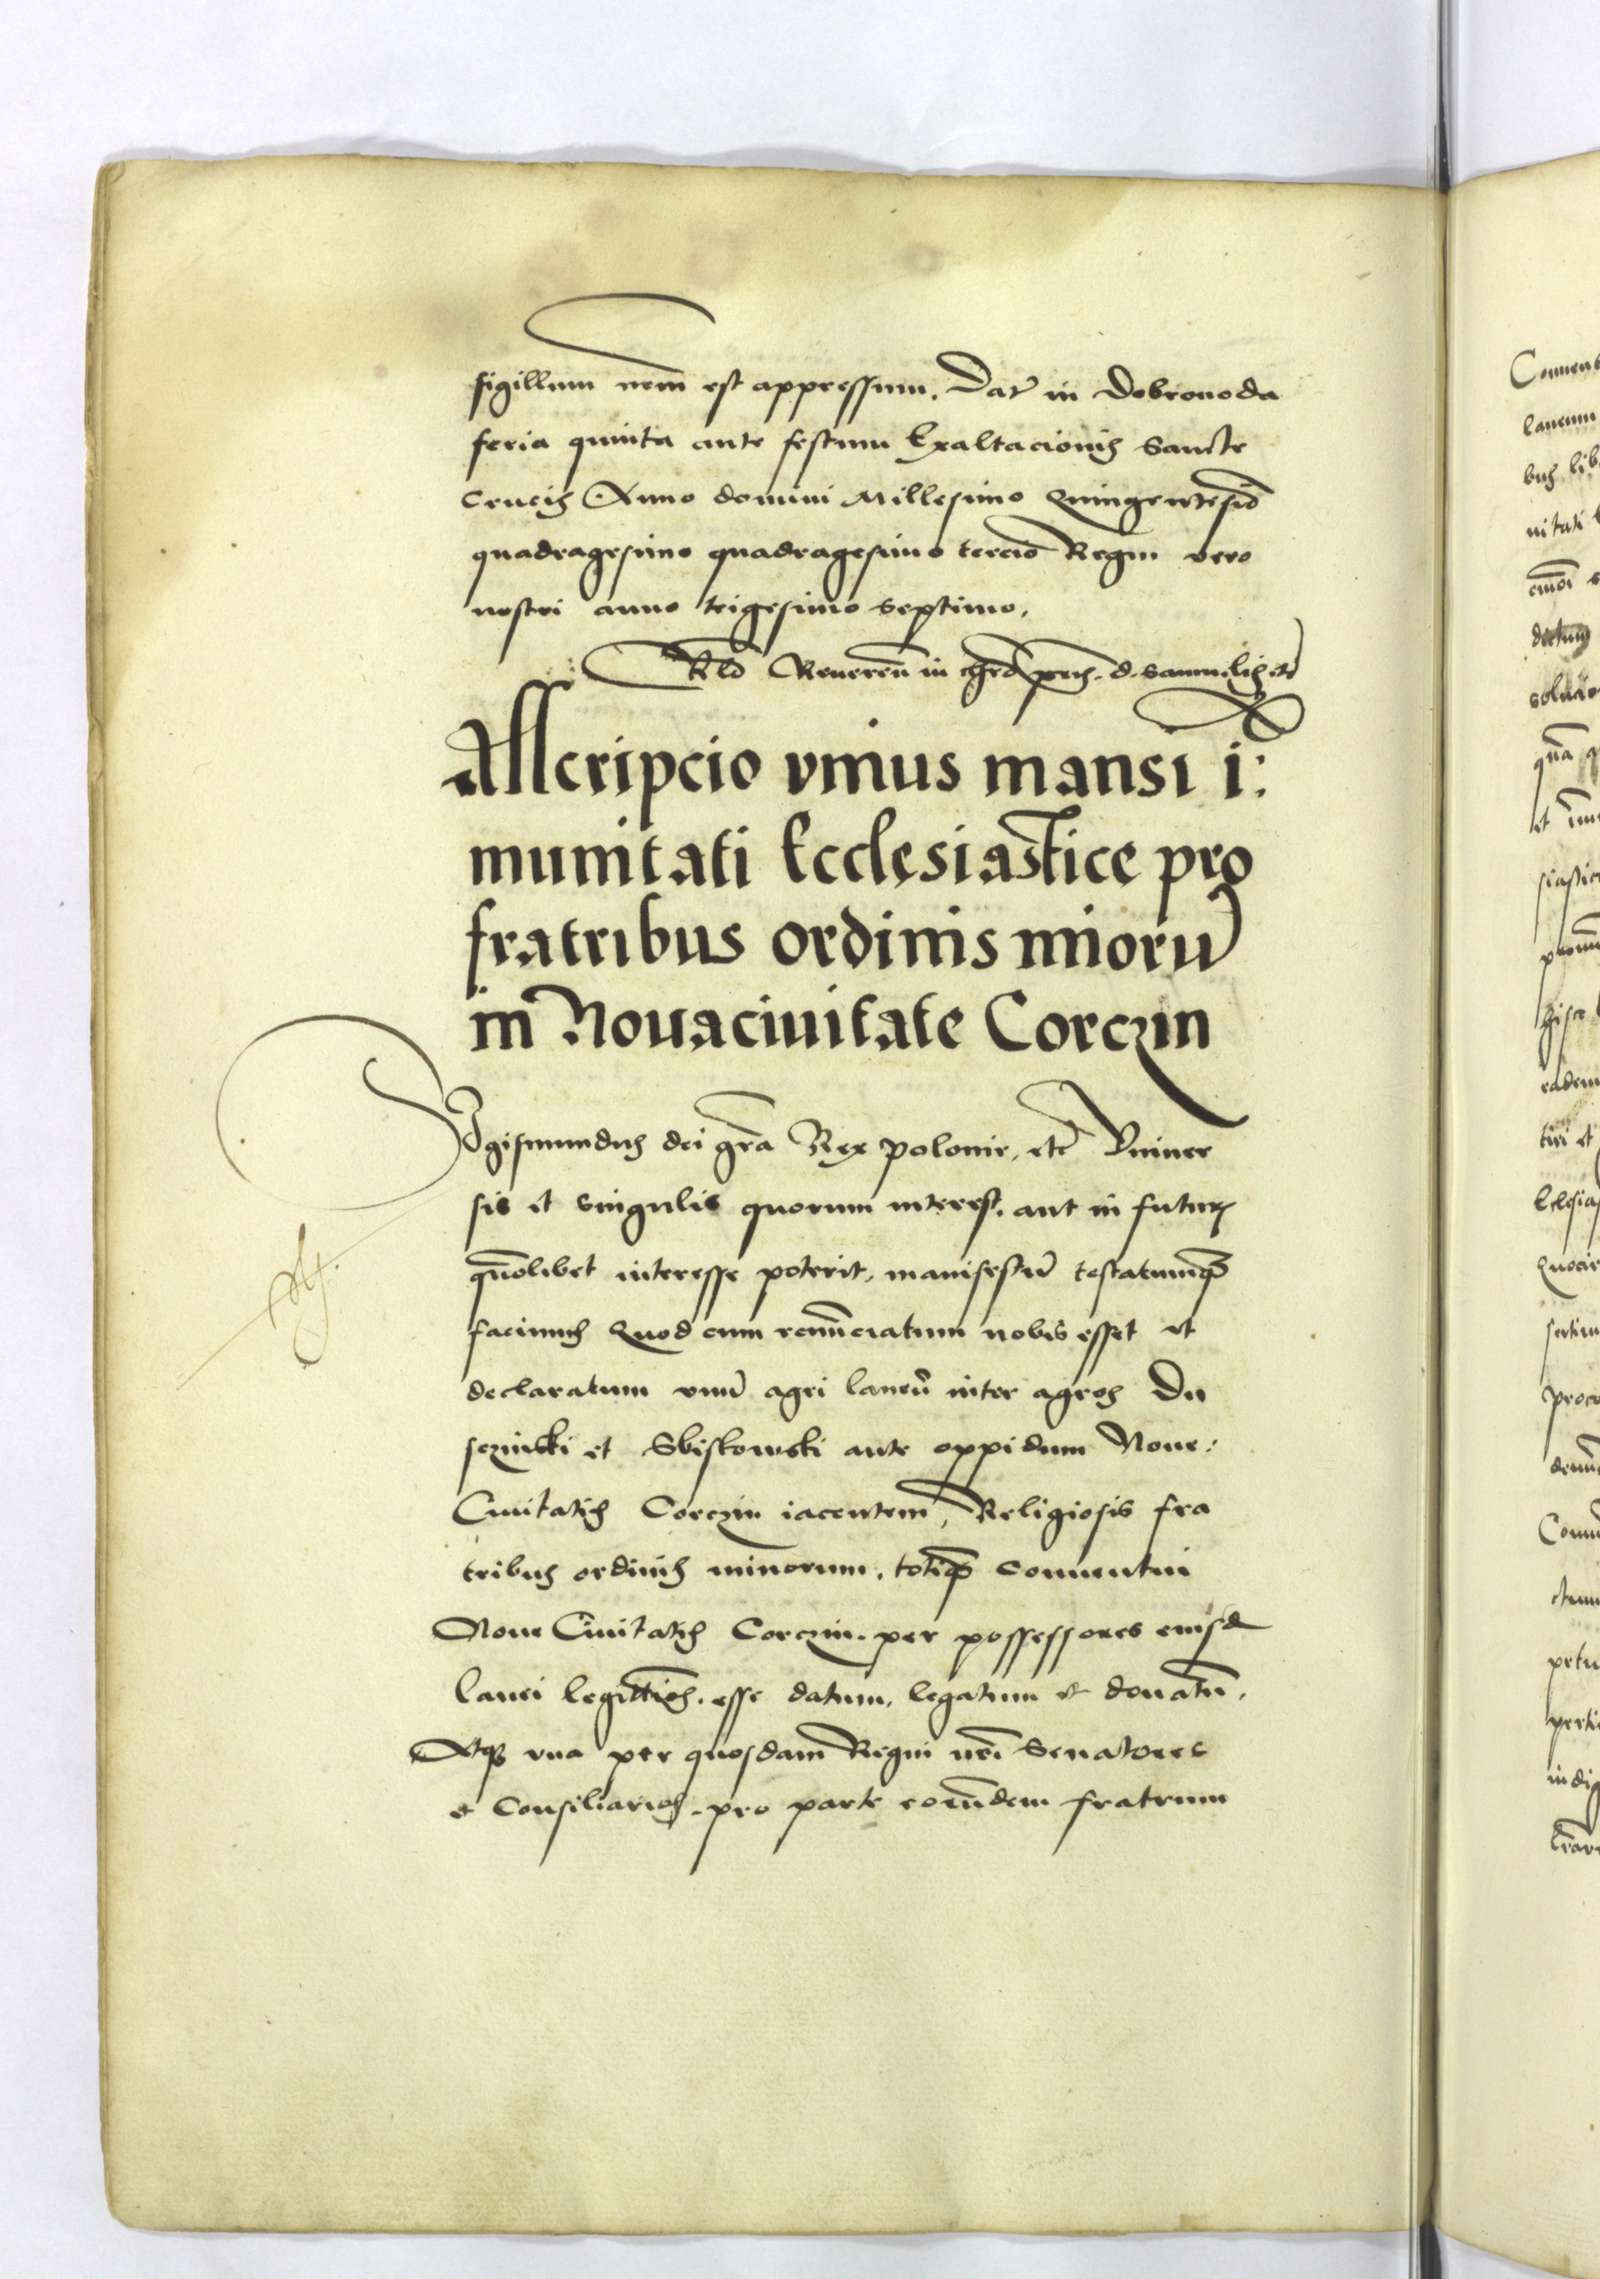 sigillum nrm̄ est appressum. Dat̄ in Dobrowoda
feria quinta ante festum Exaltacionis Sancte
Crucis Anno domini Millesimo Quingentesiō
quadragesimo quadragesimo tercio Regni vero
nostri anno trigesimo septimo.
Rl̄o Reueren̄ in chrō pr̄is. d. Samuelis etc̄
Asscripcio vnius mansi i:
munitati Ecclesiastice pro
fratribus ordinis mı̄orū
in Nouaciuitate Corczin
Sigismundus dei grā Rex polonie, etc̄ Vniuer
sis et singulis quorum interest. aut in futurū
quōlibet interesse poterit, manifestū testatumq̄
facimus Quod cum renūciatum nobis esset et
declaratum vnū agri laneū inter agros Du
sczinski et Sbiskowski ante oppidum Noue:
Ciuitatis Corczin iacentem, Religiosis fra
tribus ordinis minorum. totiq̄ Conuentui
Noue Ciuitatis Corczin. per possessores eiusd
lanei legittīos. esse datum, legatum et donatū.
Atq̄ vna per quosdam Regni nr̄i Senatores
et Consiliarios. pro parte eorūdem fratrum
Conuent
laneum
bus lib
nitati
solui
et
siastic
eadem
tiri et
Ecclesias
Quocir
proc
petu
perti
indi